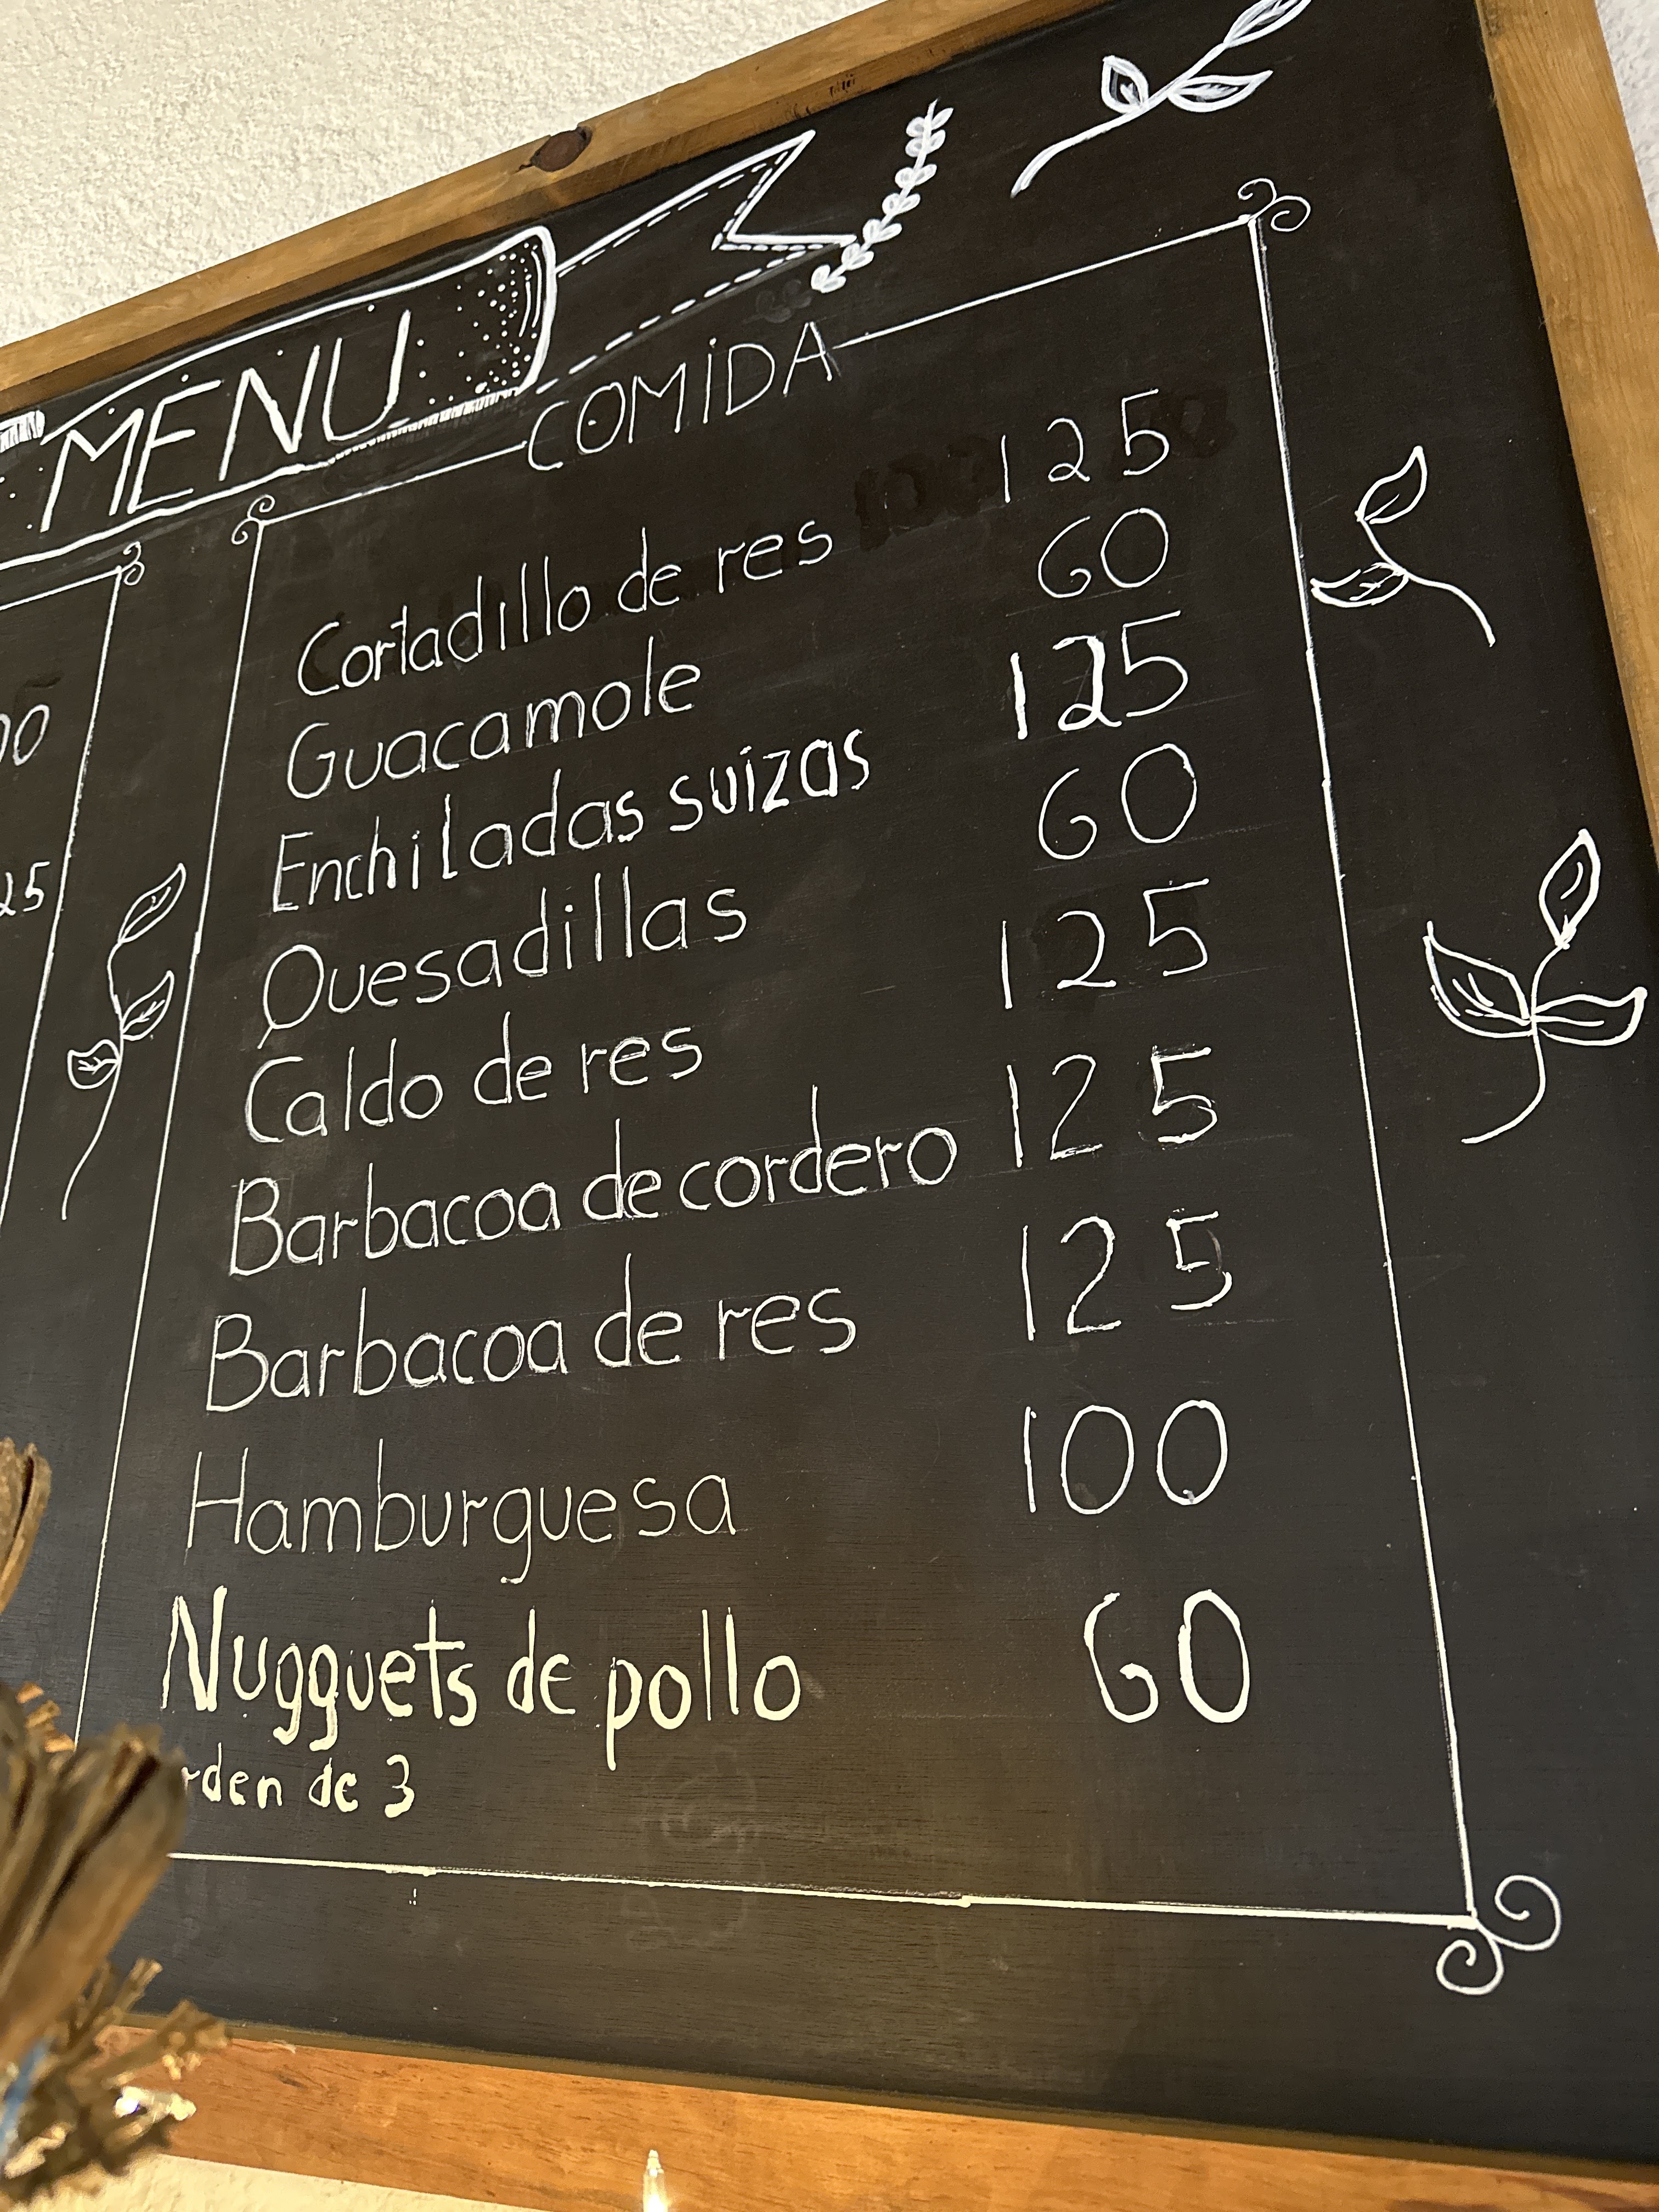 MENU
COMIDA
Cortadillo de res 125
Guacamole 60
Enchiladas suizas 125
Quesadillas 60
Caldo de res 125
Barbacoa de cordero 125
Barbacoa de res 125
Hamburguesa 100
Nugguets de pollo 60
rden de 3
00
25